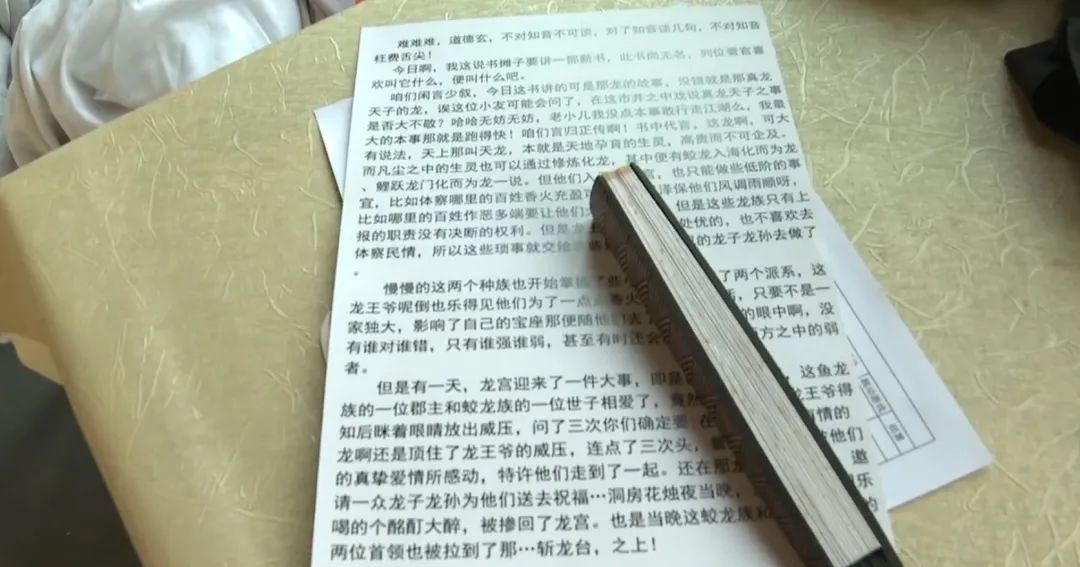 难难难，道德玄，不对知音不可谈，对了知音谈几句，不对知音
枉费舌尖！
今日啊，我这说书摊子要讲一部新书，此书尚无名，列位看官喜
欢叫它什么，便叫什么吧。
咱们闲言少叙，今日这书讲的可是那龙的故事，没错就是那真龙
天子的龙，诶这位小友可能会问了，在这市井之中戏说真龙天子之事
是否大不敬？哈哈无妨无妨，老小儿我没点本事敢行走江湖么，我最
大的本事那就是跑得快！咱们言归正传啊！书中代言，这龙啊，可大
有说法，天上那叫天龙，本就是天地孕育的生灵，高贵而不可企及。
而凡尘之中的生灵也可以通过修炼化龙，其中便有蛟龙入海化而为龙
、鲤跃龙门化而为龙一说。但他们入 宫，也只能做些低阶的事
宜，比如体察哪里的百姓香火充盈可 泽保他们风调雨顺呀，
比如哪里的百姓作恶多端要让他们 但是这些龙族只有上
报的职责没有决断的权利。但是龙 处优的，也不喜欢去
体察民情，所以这些琐事就交给 的龙子龙孙去做了
。
慢慢的这两个种族也开始掌 了些 了两个派系，这
龙王爷呢倒也乐得见他们为了一点 香火 ，只要不是一
家独大，影响了自己的宝座那便随他们去 的眼中啊，没
有谁对谁错，只有谁强谁弱，甚至有时还会 方之中的弱
者。
但是有一天，龙宫迎来了一件大事，即是 ，这鱼龙
族的一位郡主和蛟龙族的一位世子相爱了， 龙王爷得
知后眯着眼睛放出威压，问了三次你们确定要 在 有情的
龙啊还是顶住了龙王爷的威压，连点了三次头， 他们
的真挚爱情所感动，特许他们走到了一起。还在那 邀
请一众龙子龙孙为他们送去祝福…洞房花烛夜当晚， 乐
喝的个酩酊大醉，被掺回了龙宫。也是当晚这蛟龙族和 的
两位首领也被拉到了那…斩龙台，之上！